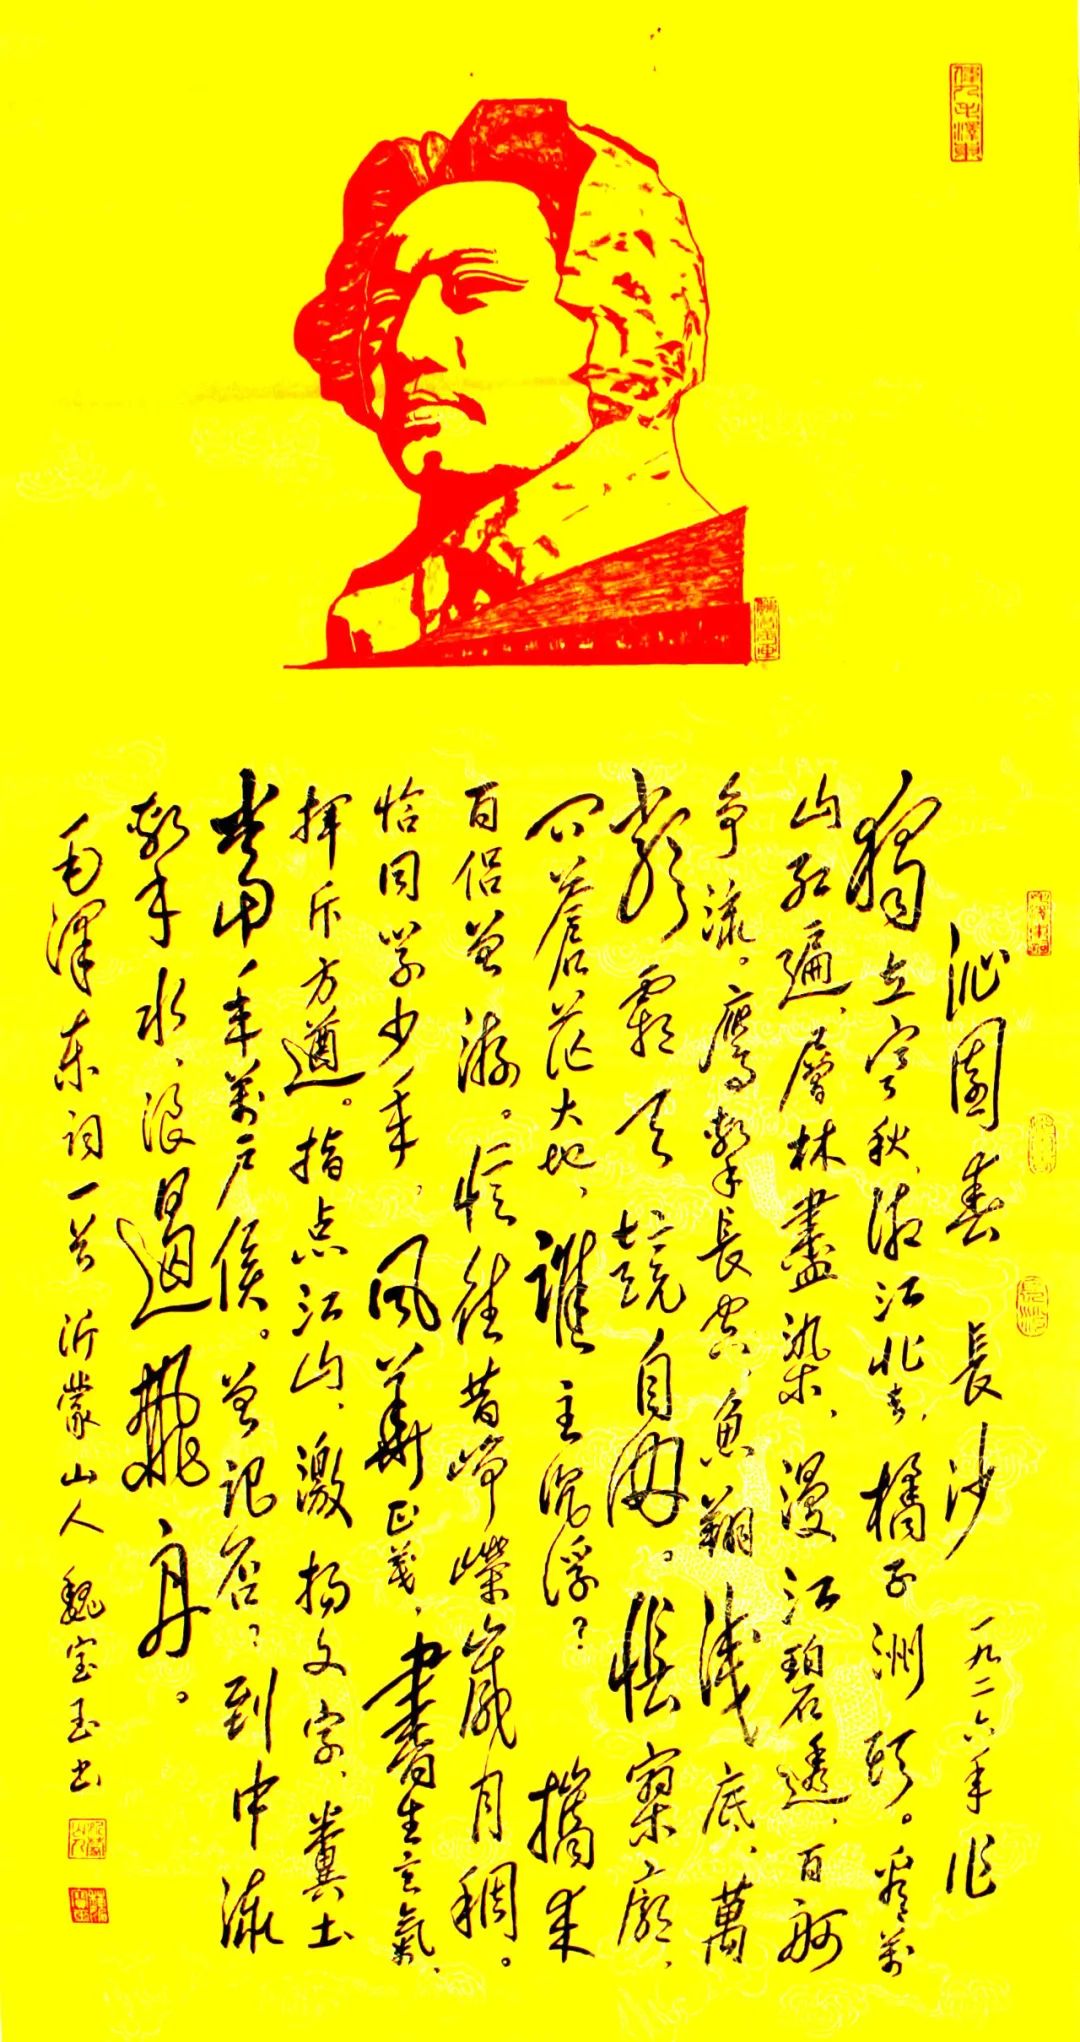 偉人毛澤東
沁園春 長沙 一九二六年作
獨立寒秋、湘江北去,橘子洲頭。看萬
山紅遍、層林盡染,漫江碧透,百舸
争流。鷹擊長空,魚翔淺底,萬
類霜天競自由。悵寥廓,
问蒼茫大地,誰主沉浮?攜来
百侣曾游。憶往昔峥嶸歲月稠。
恰同学少年,风華正茂,書生意氣,
揮斥方遒。指点江山,激揚文字,糞土
當年萬户侯。曾记否?到中流
擊水,浪遏飛舟。
毛澤东词一首 沂蒙山人 魏宝玉书
長沙
沂蒙山人